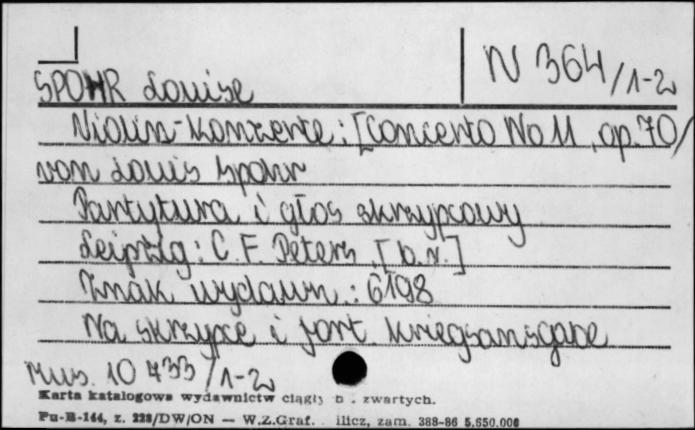 N 364/1-2
SPOHR Louise
Violin-Konzerte : [Concerto No 11, op. 70/
von Louis Spohr
Partytura i głos skrzypcowy
Leipzig : C. F. Peters, [b.r.]
Znak wydawn. : 6198
Na skrzypce i fort. Kriegsausgabe
Mus. 10 433/1-2
Karta katalogowa wydawnictw ciągłych i zwartych.
Pu-B-144, z. 228/DW/ON — W.Z.Graf. zam. 388-86 5.550.000